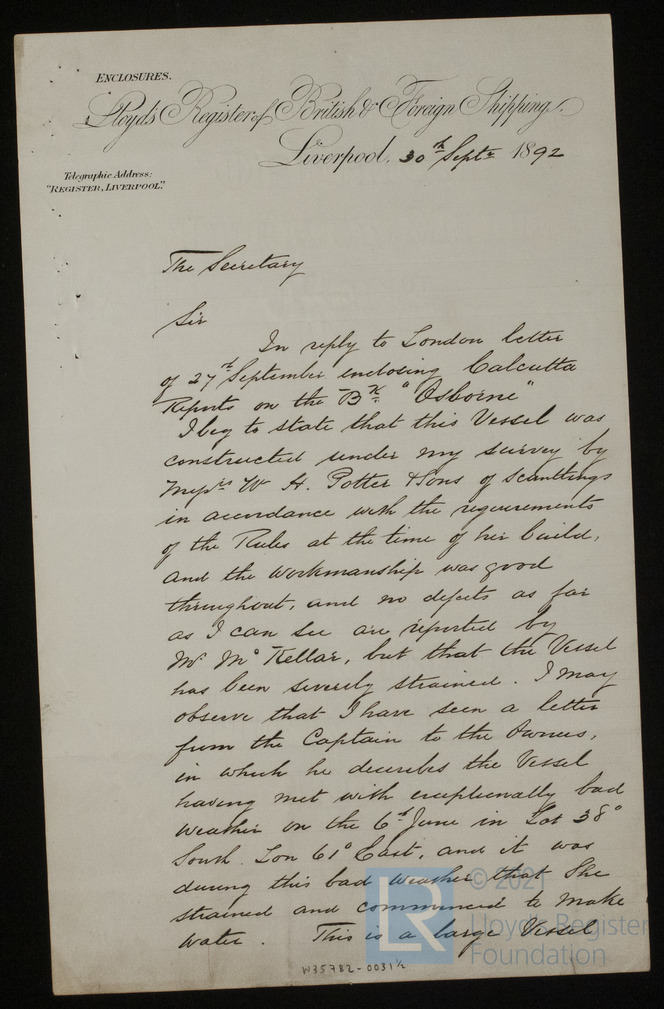 ENCLOSURES.
Lloyd's Register of British & Foreign Shipping.
Liverpool, 30th Septr 1892
Telegraphic Address:
"REGISTER, LIVERPOOL."
The Secretary
Sir
In reply to London letter
of 27th September enclosing Calcutta
Reports on the Bk "Osborne"
I beg to state that this Vessel was
constructed under my survey by
Messrs W. H. Potter & Sons of scantlings
in accordance with the requirements
of the Rules at the time of her build,
and the workmanship was good
throughout, and no defects as far
as I can see are reported by
Mr McKellar, but that the Vessel
has been severely strained. I may
observe that I have seen a letter
from the Captain to the Owners,
in which he describes the Vessel
having met with exceptionally bad
weather on the 6th June in Lat 38°
South. Lon 61° East, and it was
during this bad weather that She
strained and commenced to make
water. This is a large Vessel
W35782-0031½
LR
© 2021
Lloyd's Register
Foundation